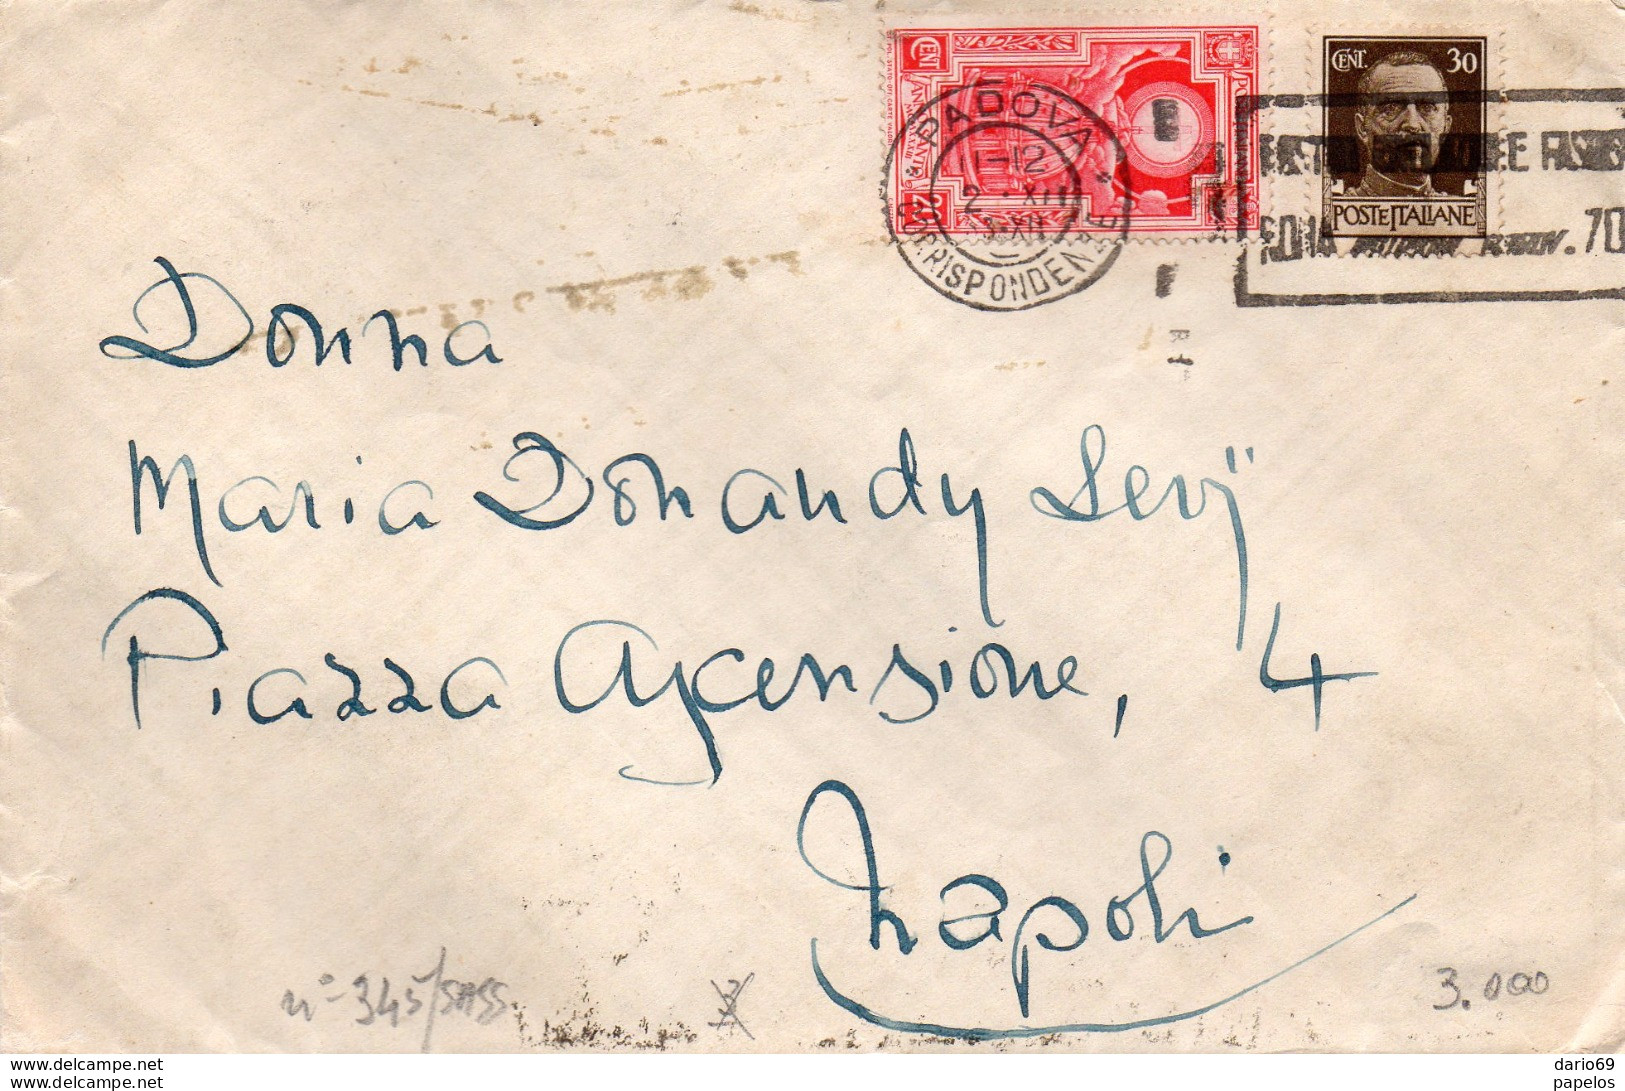 CENT. 30
POSTE ITALIANE
CENT 20
PADOVA
11-12
CORRISPONDENZE
ROMA
NOV. 70
Donna
Maria Donandy Levÿ
Piazza Ascensione, 4
Napoli
n° 345/SASS
3.000
delcampe.net
delcampe.net
dario69
papelos